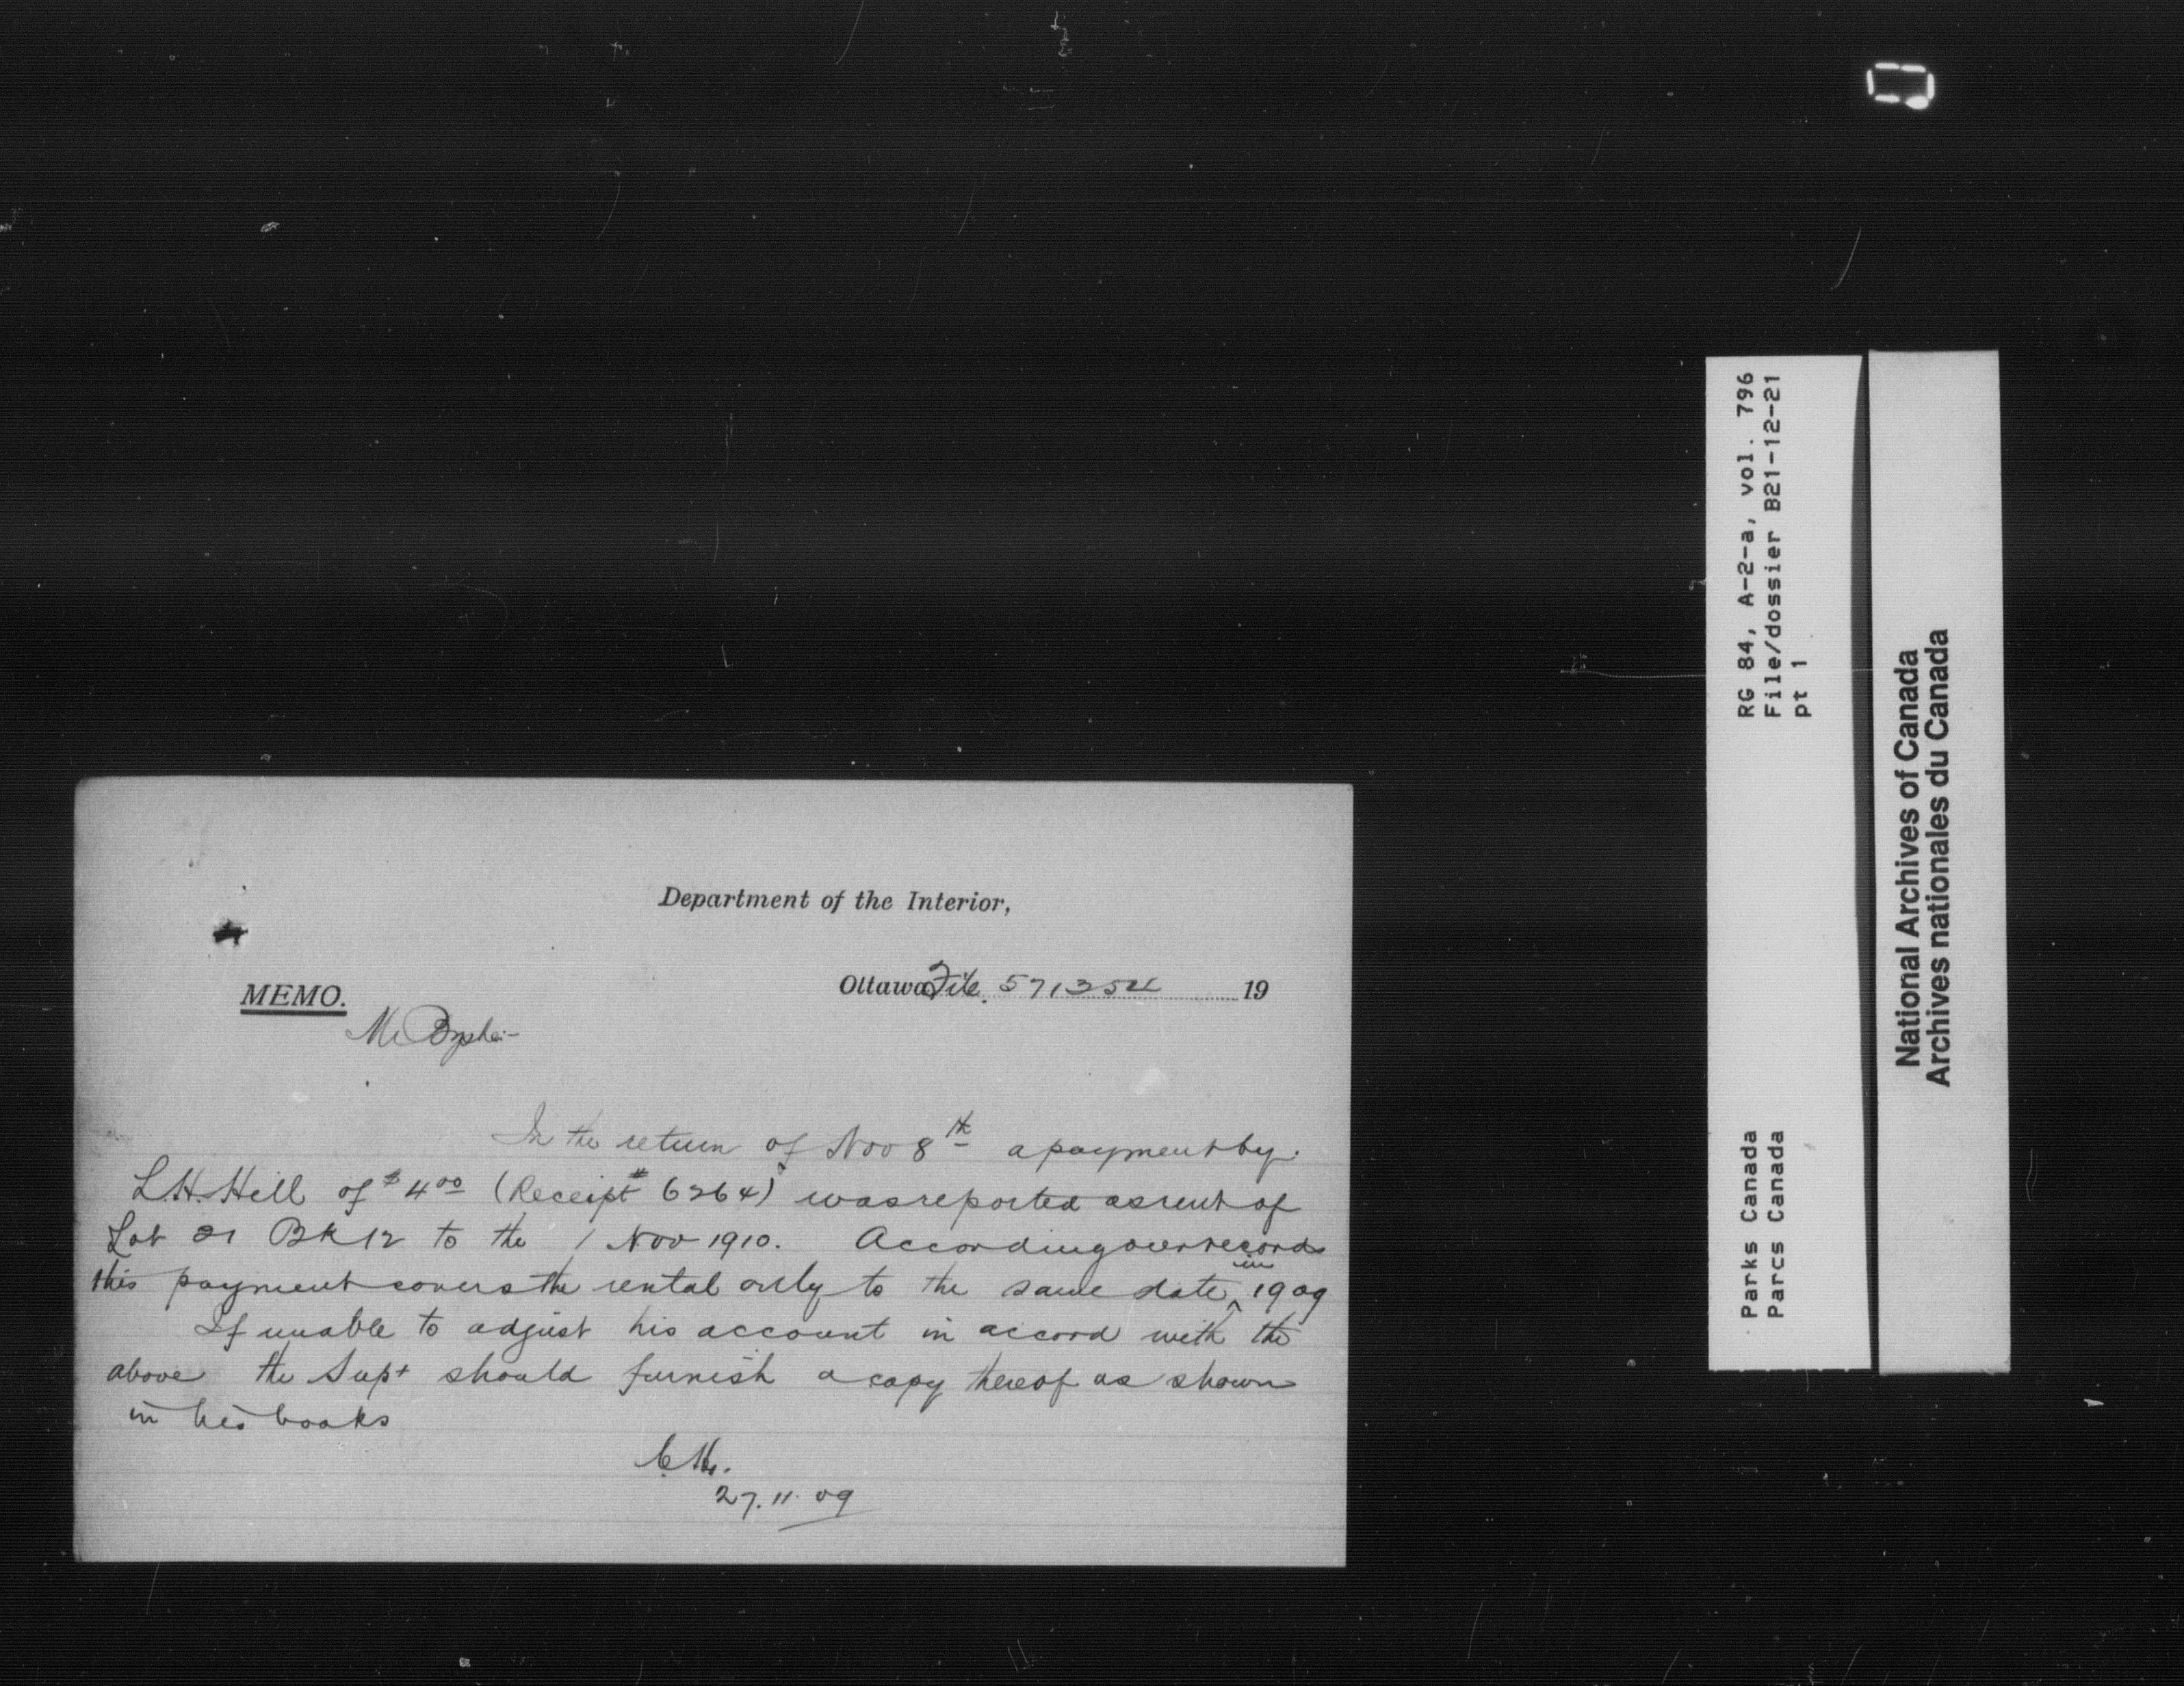 Department of the Interior,
Ottawa File 571354 19
MEMO.
Mr
In the return of Nov 8th a payment by
L.H. Hill of $4.00 (Receipt # 6264) was reported as rent of
Lot 21 Bk 12 to the 1 Nov 1910. According our records
this payment covers the rental only to the same date in 1909
If unable to adjust his account in accord with the
above the Supt should furnish a copy thereof as shown
in his books
27.11.09
RG 84, A-2-a, vol. 796
File/dossier B21-12-21
pt 1
Parks Canada
Parcs Canada
National Archives of Canada
Archives nationales du Canada